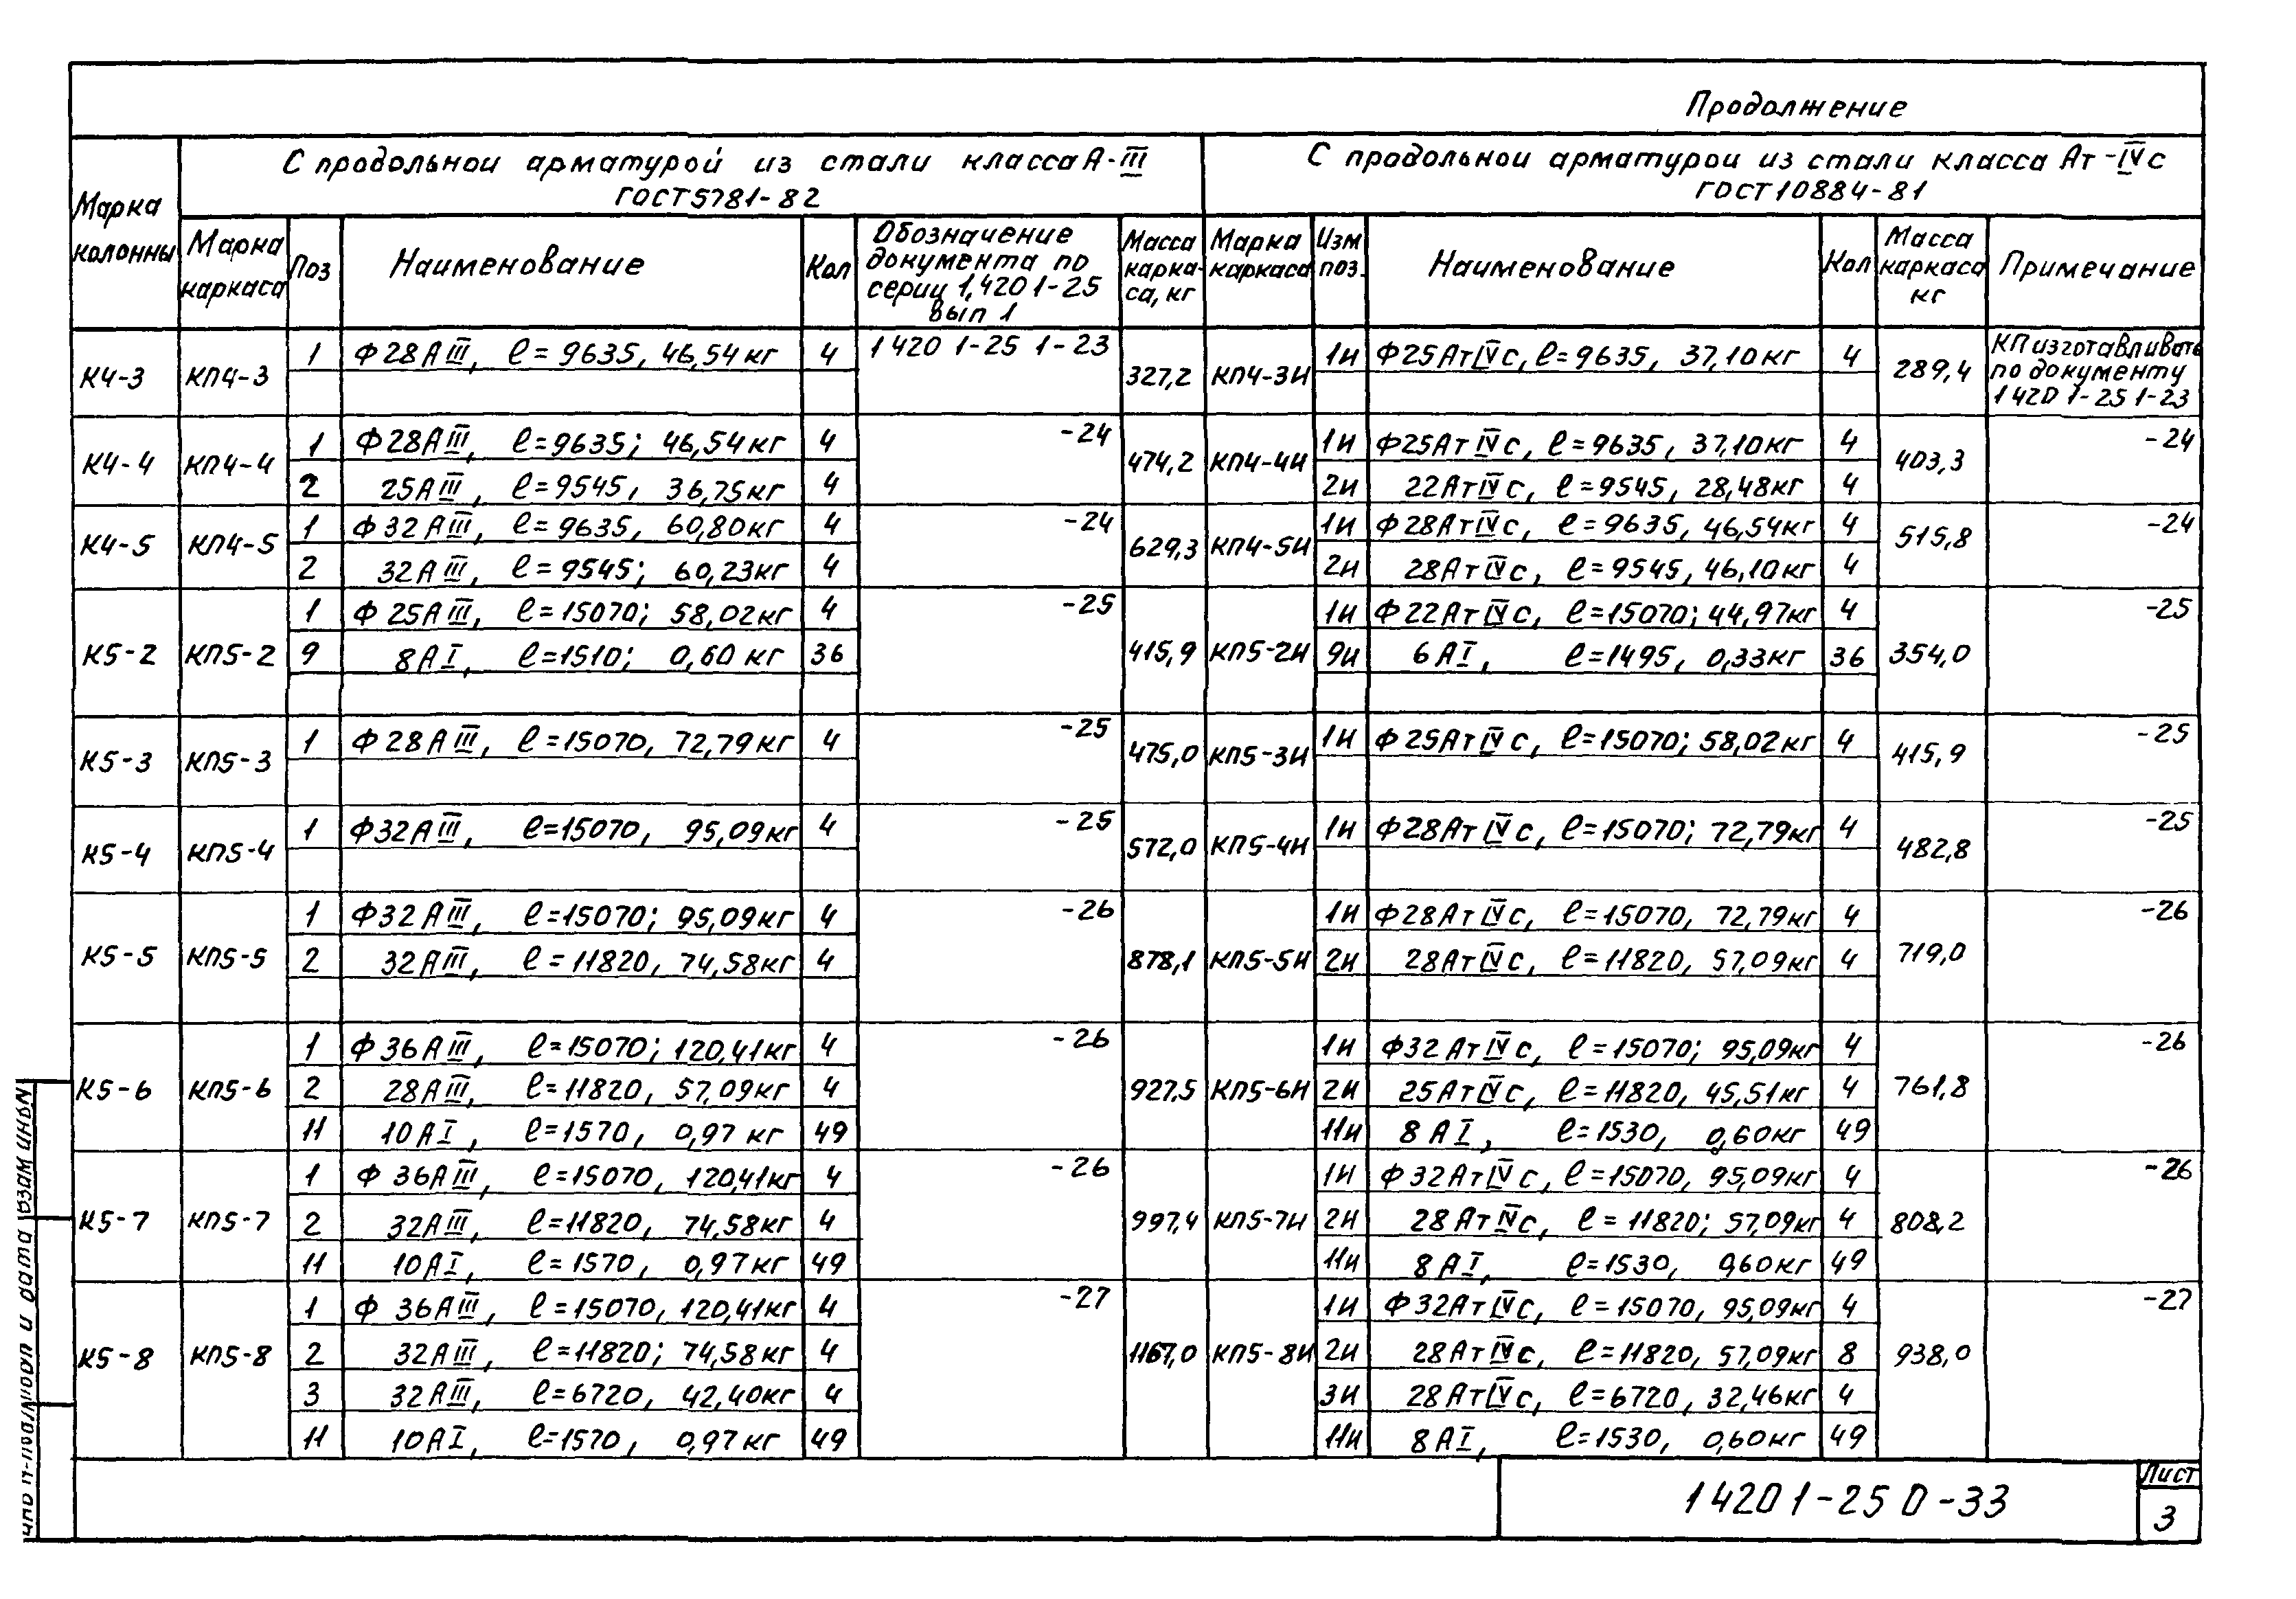 Продолжение
Марка колонны
С продольной арматурой из стали класса А-III
ГОСТ 5781-82
С продольной арматурой из стали класса Ат-IVс
ГОСТ 10884-81
Марка каркаса
Поз
Наименование
Кол
Обозначение документа по серии 1,420 1-25 вып 1
Масса каркаса, кг
Марка каркаса
Изм поз.
Наименование
Кол
Масса каркаса кг
Примечание
К4-3 КП4-3 1 Ф28АIII, ℓ=9635, 46,54кг 4 1 420 1-25 1-23 327,2 КП4-3И 1и Ф25АтIVс, ℓ=9635, 37,10кг 4 289,4 КП изготавливать
по документу
1 420 1-25 1-23
К4-4 КП4-4 1 Ф28АIII, ℓ=9635; 46,54кг 4 -24 474,2 КП4-4И 1и Ф25АтIVс, ℓ=9635, 37,10кг 4 403,3 -24
2 25АIII, ℓ=9545, 36,75кг 4 2и 22АтIVс, ℓ=9545, 28,48кг 4
К4-5 КП4-5 1 Ф32АIII, ℓ=9635, 60,80кг 4 -24 629,3 КП4-5И 1и Ф28АтIVс, ℓ=9635, 46,54кг 4 515,8 -24
2 32АIII, ℓ=9545; 60,23кг 4 2и 28АтIVс, ℓ=9545, 46,10кг 4
К5-2 КП5-2 1 Ф25АIII, ℓ=15070; 58,02кг 4 -25 415,9 КП5-2И 1и Ф22АтIVс, ℓ=15070; 44,97кг 4 354,0 -25
9 8АI, ℓ=1510; 0,60кг 36 9и 6АI, ℓ=1495, 0,33кг 36
К5-3 КП5-3 1 Ф28АIII, ℓ=15070, 72,79кг 4 -25 475,0 КП5-3И 1и Ф25АтIVс, ℓ=15070; 58,02кг 4 415,9 -25
К5-4 КП5-4 1 Ф32АIII, ℓ=15070, 95,09кг 4 -25 572,0 КП5-4И 1и Ф28АтIVс, ℓ=15070; 72,79кг 4 482,8 -25
К5-5 КП5-5 1 Ф32АIII, ℓ=15070; 95,09кг 4 -26 878,1 КП5-5И 1и Ф28АтIVс, ℓ=15070, 72,79кг 4 719,0 -26
2 32АIII, ℓ=11820, 74,58кг 4 2и 28АтIVс, ℓ=11820, 57,09кг 4
К5-6 КП5-6 1 Ф36АIII, ℓ=15070; 120,41кг 4 -26 927,5 КП5-6И 1и Ф32АтIVс, ℓ=15070; 95,09кг 4 761,8 -26
2 28АIII, ℓ=11820, 57,09кг 4 2и 25АтIVс, ℓ=11820, 45,51кг 4
11 10АI, ℓ=1570, 0,97кг 49 11и 8АI, ℓ=1530, 0,60кг 49
К5-7 КП5-7 1 Ф36АIII, ℓ=15070, 120,41кг 4 -26 997,4 КП5-7И 1и Ф32АтIVс, ℓ=15070, 95,09кг 4 808,2 -26
2 32АIII, ℓ=11820, 74,58кг 4 2и 28АтIVс, ℓ=11820; 57,09кг 4
11 10АI, ℓ=1570, 0,97кг 49 11и 8АI, ℓ=1530, 0,60кг 49
К5-8 КП5-8 1 Ф36АIII, ℓ=15070, 120,41кг 4 -27 1167,0 КП5-8И 1и Ф32АтIVс, ℓ=15070, 95,09кг 4 938,0 -27
2 32АIII, ℓ=11820; 74,58кг 4 2и 28АтIVс, ℓ=11820, 57,09кг 8
3 32АIII, ℓ=6720, 42,40кг 4 3и 28АтIVс, ℓ=6720, 32,46кг 4
11 10АI, ℓ=1570, 0,97кг 49 11и 8АI, ℓ=1530, 0,60кг 49
1 420 1-25 0-33
Лист
3
и дата взам инв№